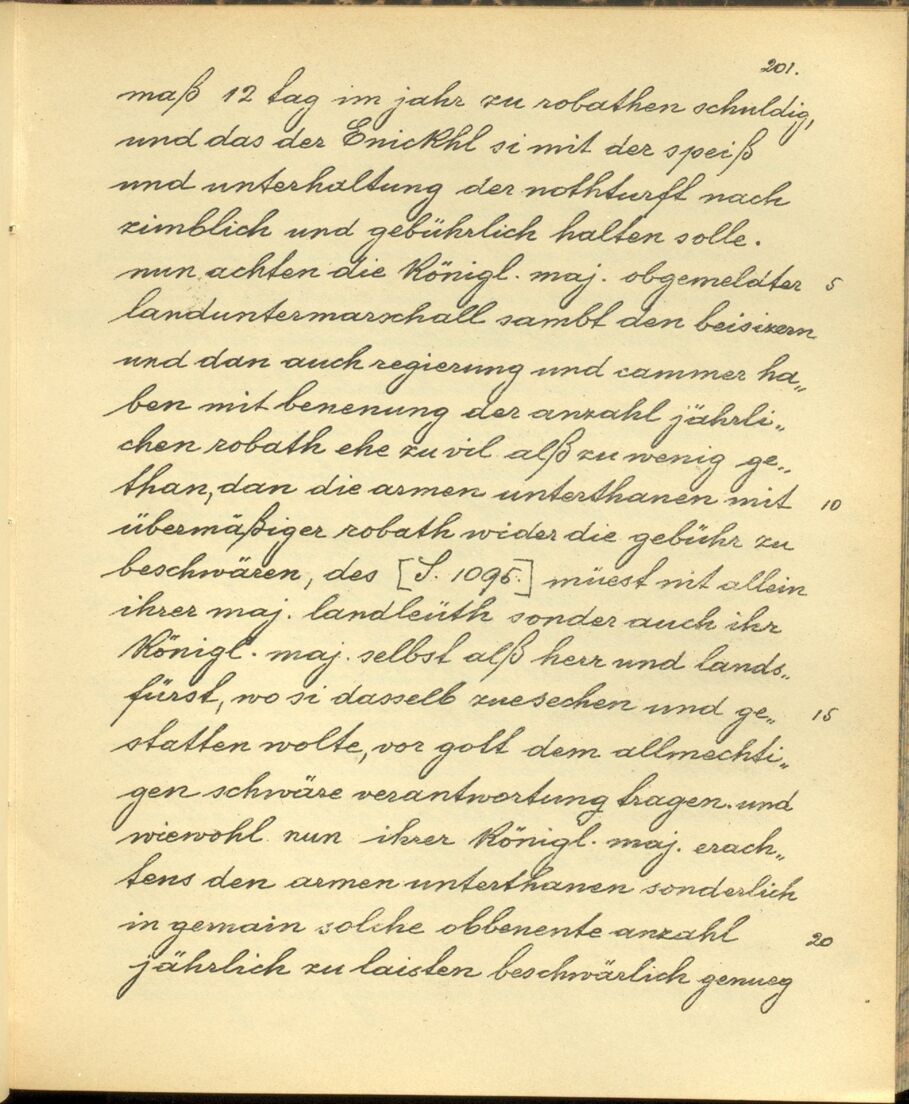 201.
maß 12 tag im jahr zu robathen schuldig,
und das der Enickhl si mit der speiß
und unterhaltung der nothturfft nach
zimblich und gebührlich halten solle.
nun achten die Königl. maj. obgemeldter 5
landuntermarschall sambt den beisizern
und dan auch regierung und cammer ha„
ben mit benenung der anzahl jährli„
chen robath ehe zu vil alß zu wenig ge„
than, dan die armen unterthanen mit 10
übermäßiger robath wider die gebühr zu
beschwären, des [S. 1095.] müest nit allein
ihrer maj. landleüth sonder auch ihr
Königl. maj. selbst alß herr und lands„
fürst, wo si dasselb zuesechen und ge„ 15
statten wolte, vor gott dem allmechti„
gen schwäre verantwortung tragen. und
wiewohl nun ihrer Königl. maj. erach„
tens den armen unterthanen sonderlich
in gemain solche obbenente anzahl 20
jährlich zu laisten beschwärlich genueg